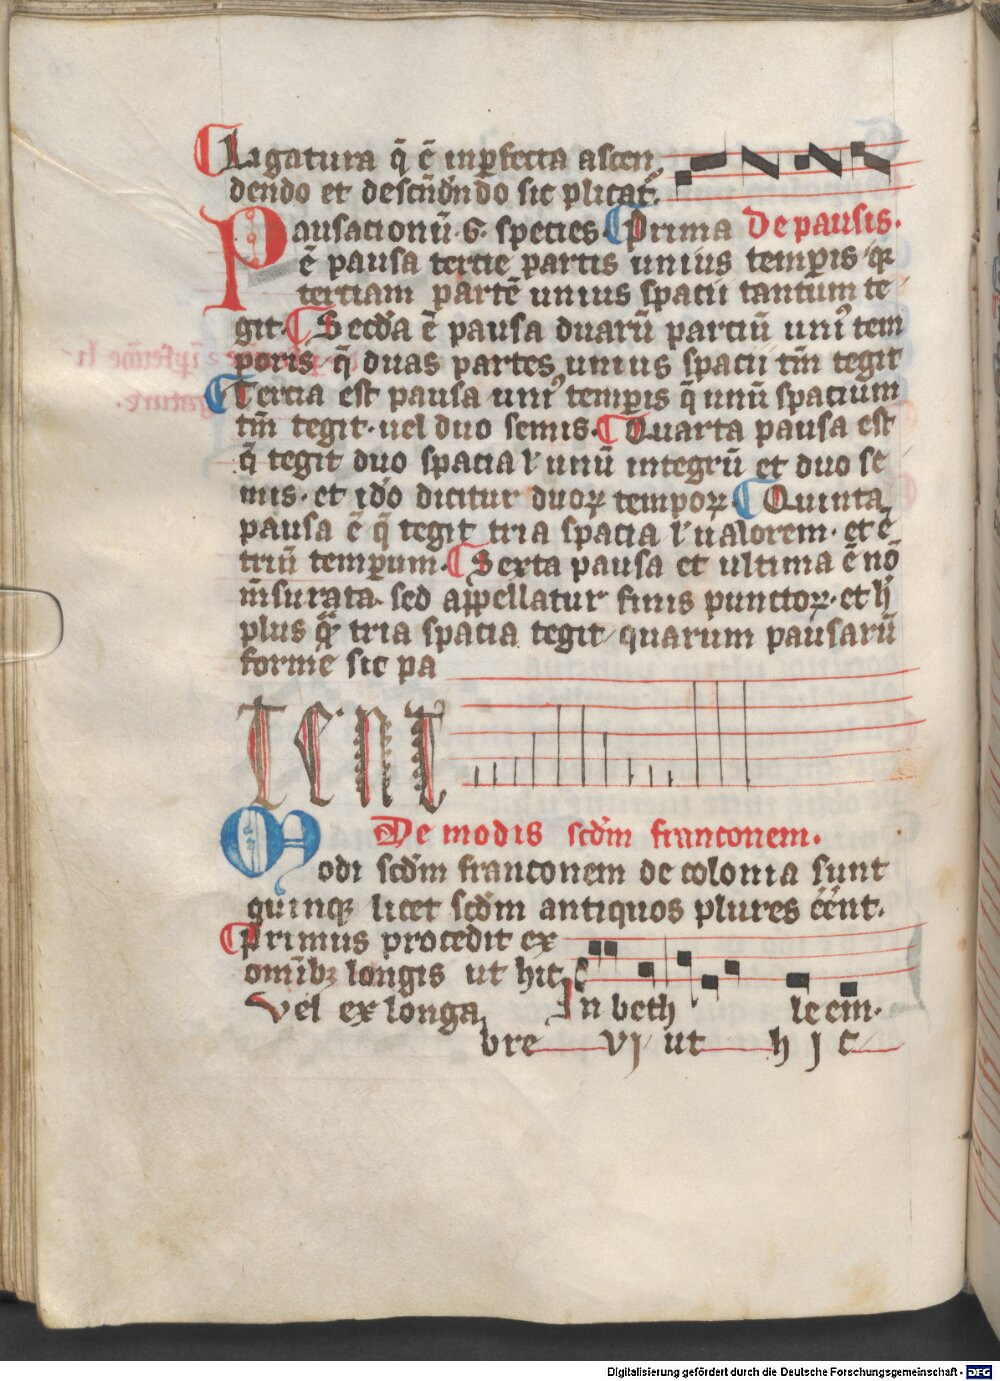 Ligatura q̄ ē inp̄fecta ascen
dendo et descēdēndo sic plicat᷑.
Pausacionū ·6· species· Prima De pausis·
ē pausa tercie partis unius temp̄is q̄
terciam partē unius spacii tantum te
git· Secd̄a ē pausa duarū parciū uni᷒ tem
poris q̄ duas partes unius spacii tm̄ tegit
Tercia est pausa uni᷒ temp̄is q̄ unū spacium
tm̄ tegit· uel duo semis· Quarta pausa est
q̄ tegit duo spacia l' unū integrū et duo se
mis· et id̄o dicitur duoꝝ tempoꝝ· Quinta
pausa ē q̄ tegit tria spacia l' ualorem· et ē
triū temp̄um· Sexta pausa et ultima ē nō
m̄surata· sed appellatur finis punctoꝝ· et h̄
plus q̄ tria spacia tegit quarum pausarū
forme sic pa
tent
De modis scd̄m franconem·
Modi scd̄m franconem de colonia sunt
quinqꝫ licet scd̄m antiquos plures ēēnt·
Primus procedit ex
omībꝫ longis ut hic
In beth leem·
Vel ex longa
bre vi ut h i c
Digitalisierung gefördert durch die Deutsche Forschungsgemeinschaft - DFG